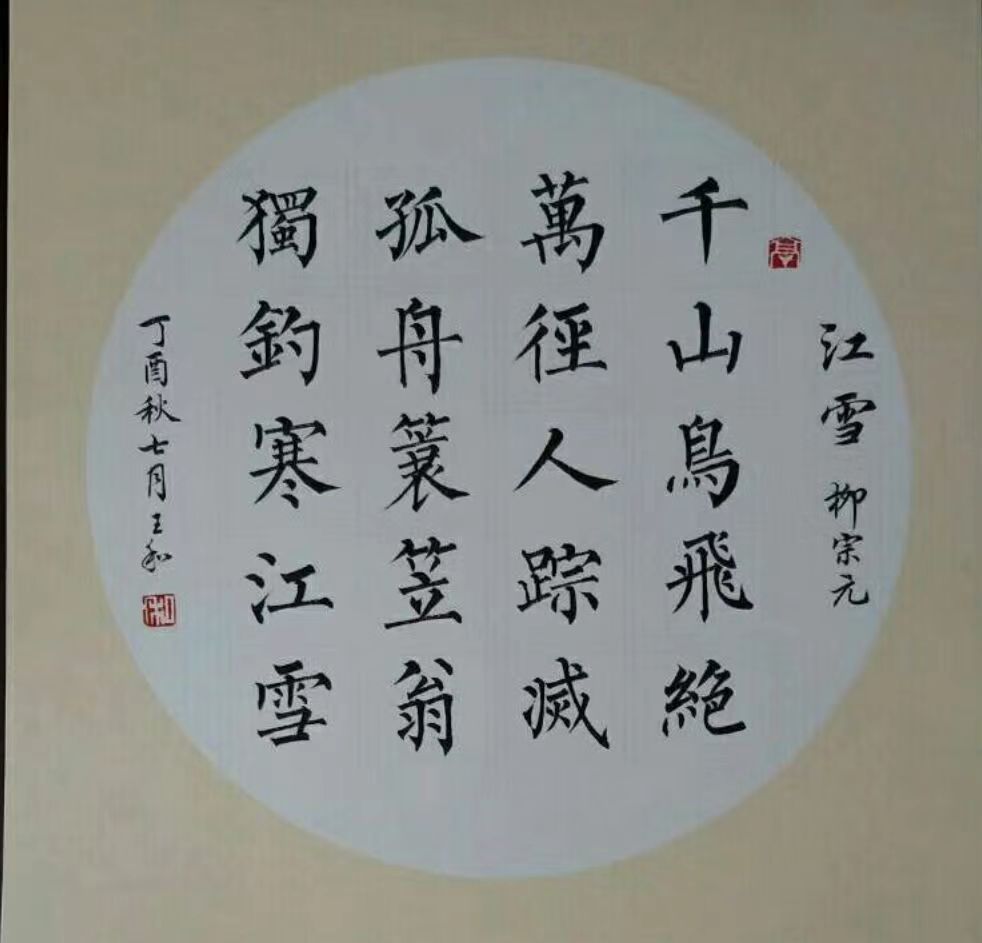 江雪 柳宗元
千山鳥飛絶
萬徑人踪滅
孤舟簑笠翁
獨釣寒江雪
丁酉秋七月王和